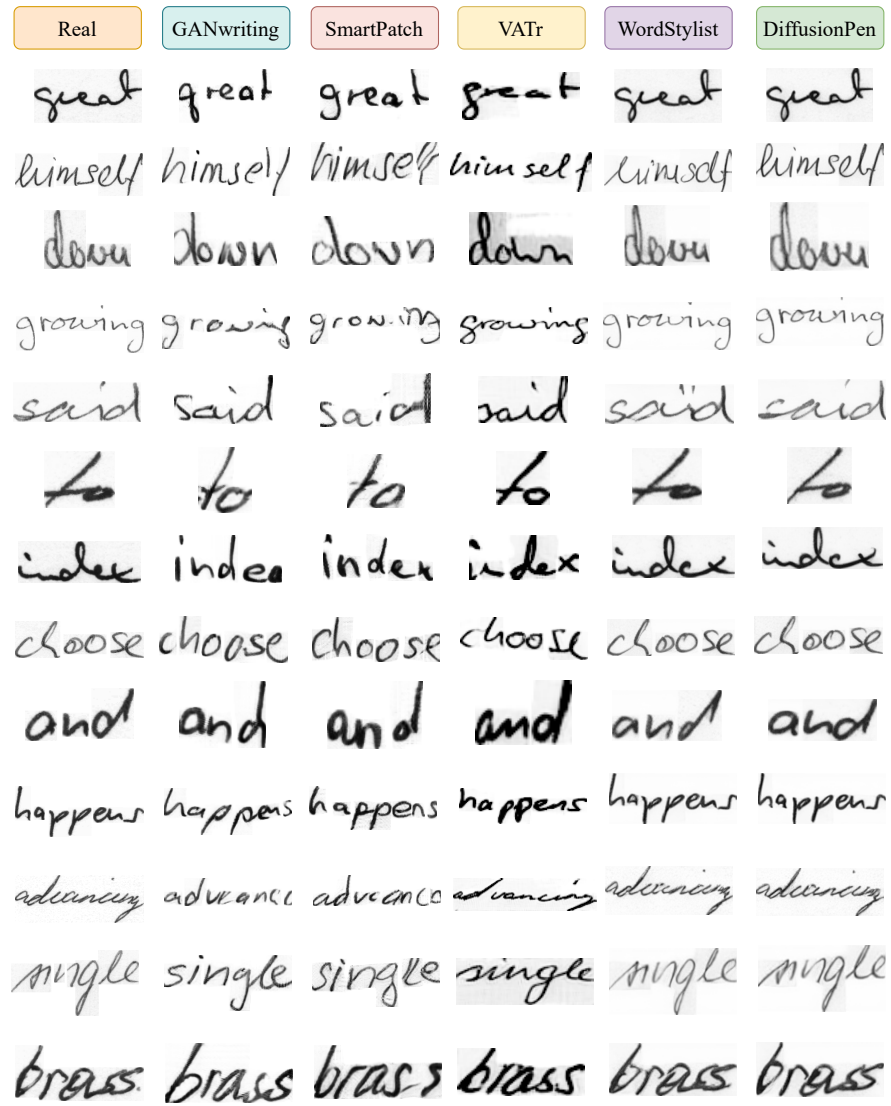 Real GANwriting SmartPatch VATr WordStylist DiffusionPen
great qreat great great great great
himself himself himself himself himself himself
down down down down down down
growing growing growing growing growing growing
said said said said said said
to to to to to to
index index index index index
choose choose choose choose choose choose
and and and and and and
happens happens happens happens happens happens
advancing advancing advancing advancing
single single single single single single
brass brass brass brass brass brass